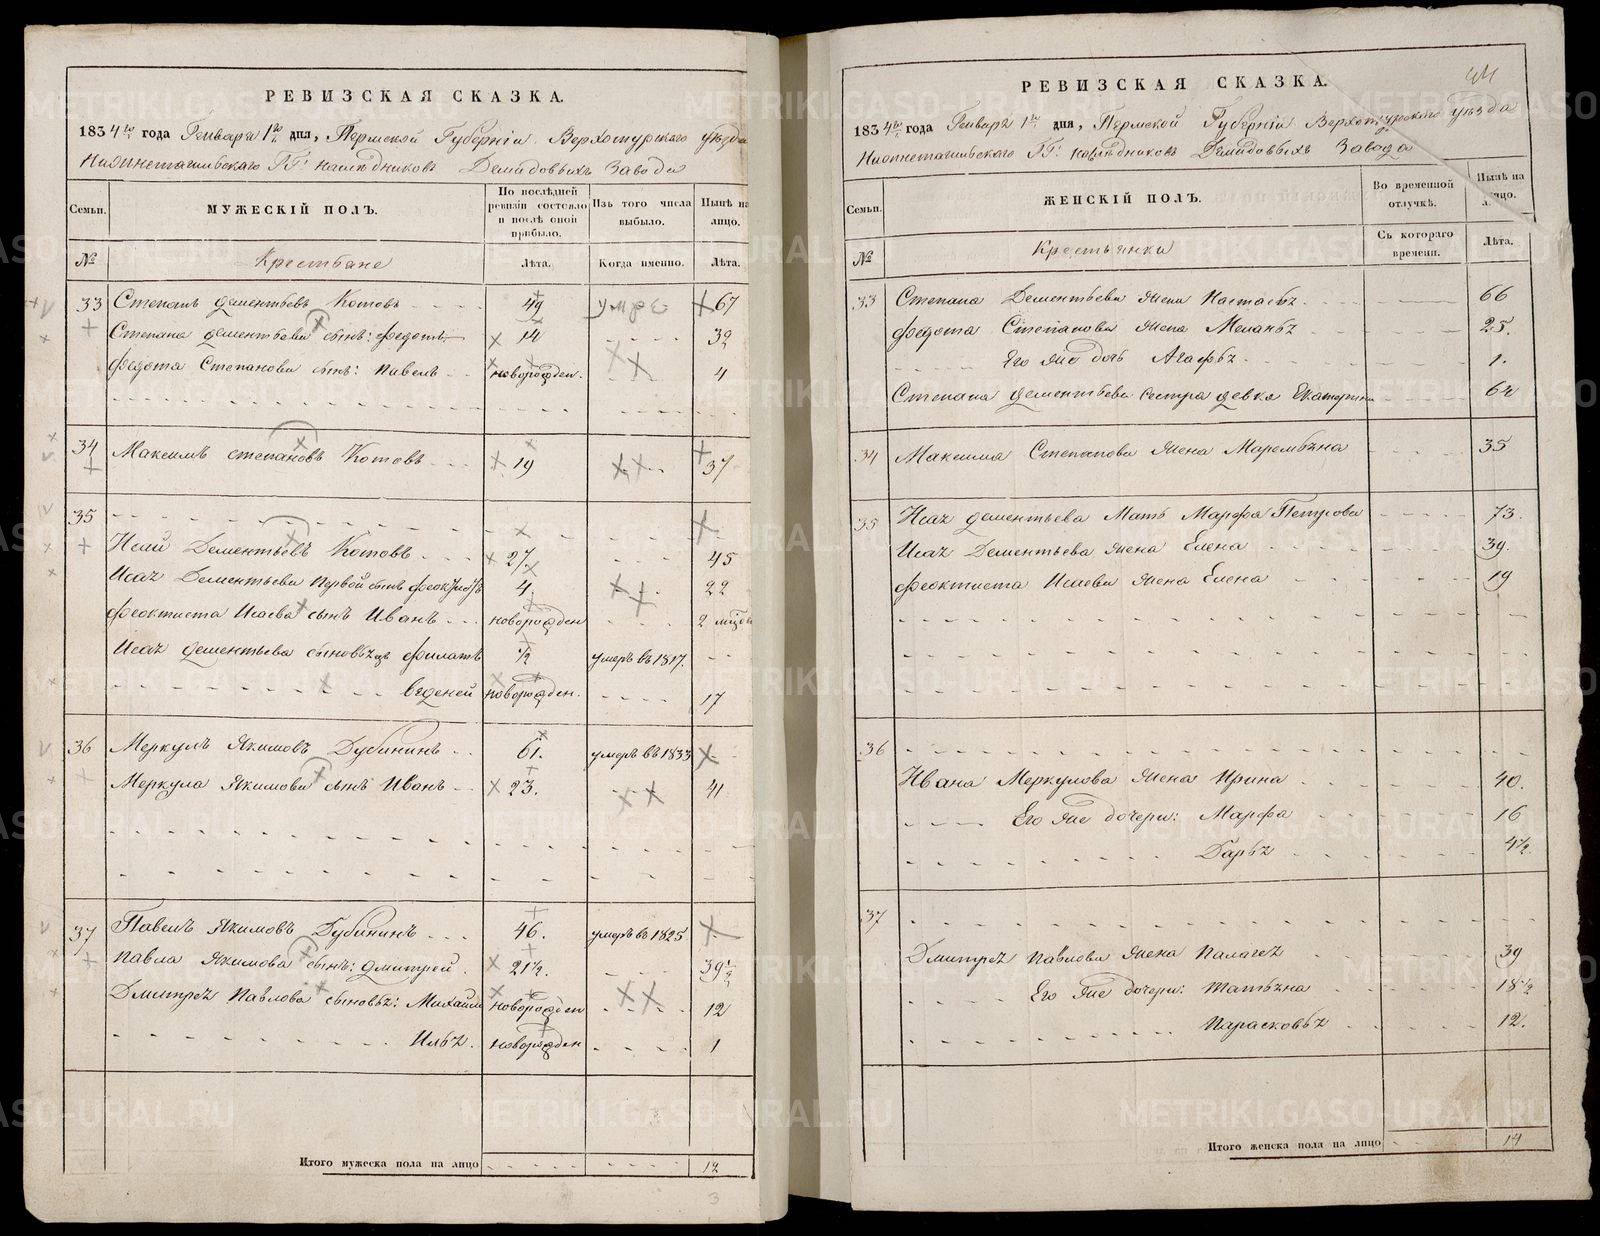 РЕВИЗСКАЯ СКАЗКА.
1834го года Генваря 1го дня, Пермской Губерніи Верхотурскаго уѣзда
Нижнетагильскаго ГГ: наслѣдниковъ Демидовыхъ Завода
Семьи. МУЖЕСКІЙ ПОЛЪ. По послѣдней ревизіи состояло и послѣ оной прибыло. Изъ того числа выбыло. Нынѣ на лицо.
№ Крестьяне Лѣта. Когда именно. Лѣта.
33 Степанъ Дементьевъ Котовъ 49 67
Степана Дементьева сынъ: Федотъ 14 32
Федота Степанова сынъ: Павелъ новорожден. 4
34 Максимъ Степановъ Котовъ 19 37
35
Исай Дементьевъ Котовъ 27. 45
Исая Дементьева первой сынъ 4. 22
Феоктиста Исаева сынъ Иванъ новорожден 2
Исая Дементьева сыновья Филатъ 1/2 умеръ въ 1817.
новорожден. 17
36 Меркулъ Якимовъ Дубининъ 61. умеръ въ 1833
Меркула Якимова сынъ Иванъ 23. 41
37 Павелъ Якимовъ Дубининъ 46. умеръ въ 1825
Павла Якимова сынъ: Дмитрей 21 1/2. 39 1/2
Дмитрея Павлова сыновья: Михайло новорожден 12
Илья. новорожден 1
Итого мужеска пола на лицо 12
3
РЕВИЗСКАЯ СКАЗКА.
1834го года Генваря 1го дня, Пермской Губерніи Верхотурскаго уѣзда
Нижнетагильскаго ГГ: наслѣдниковъ Демидовыхъ Завода
Семьи. ЖЕНСКІЙ ПОЛЪ. Во временной отлучкѣ. Нынѣ на лицо.
№ Крестьянки Съ котораго времени. Лѣта.
33 Степана Дементьева жена Настасья 66
Федота Степанова жена Меланья 25.
Его же дочь Агафья 1.
Степана Дементьева сестра девка Екатерина 62
34 Максима Степанова жена 35
35 Исая Дементьева мать Марфа Петрова 73.
Исая Дементьева жена Елена 39.
Феоктиста Исаева жена Елена 19
36
Ивана Меркулова жена Ирина 40.
Его же дочери: Марфа 16
Дарья 4 1/2.
37
Дмитрея Павлова жена Палагея 39
Его же дочери: Татьяна 18 1/2
Парасковья 12.
Итого женска пола на лицо 14
METRIKI.GASO-URAL.RU